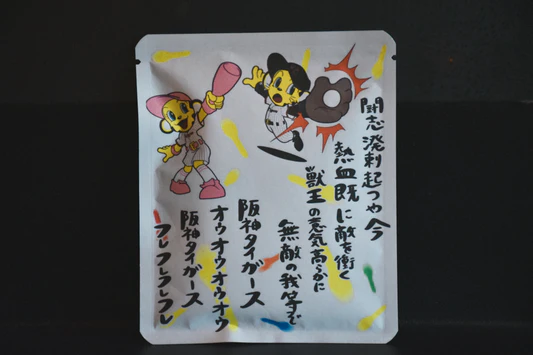 闘志溌剌起つや今
熱血既に敵を衝く
獣王の意気高らかに
無敵の我等ぞ
阪神タイガース
オウオウオウオウ
阪神タイガース
フレフレフレフレ